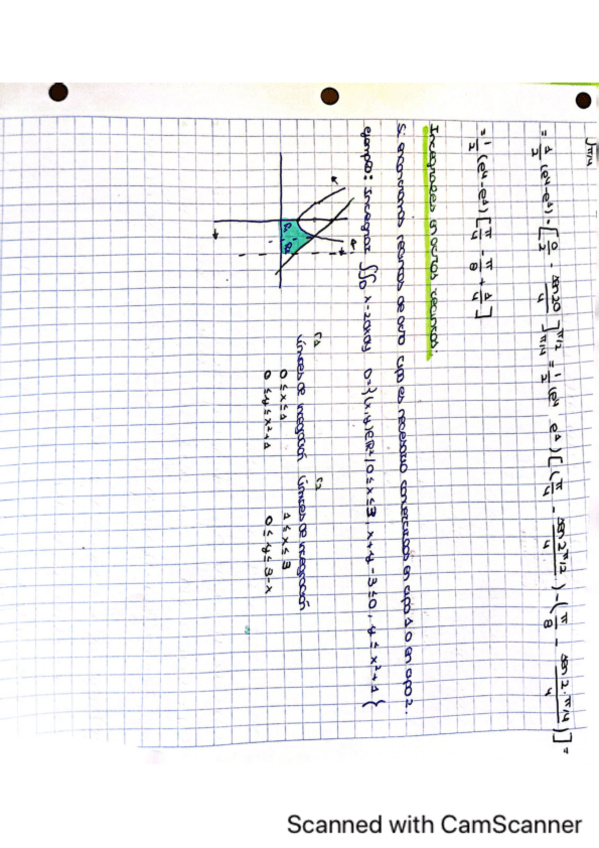 √π/4
= 1/2 (e⁴-e¹)·[θ/2 - sen2θ/4]π/2 π/4 = 1/2 (e⁴ e¹)[(π/4 - sen2π/2/4)-(π/8 - sen2·π/4/4)] =
= 1/2 (e⁴-e¹)[π/4 - π/8 + 1/4]
Integrales en otros recintos:
Si tenemos recintos de otro tipo es necesario convertirlos en tipo 1 o en tipo 2.
ejemplo: Integral ∬D x-2dxdy D={(x,y)∈ℝ²/0≤x≤3, x+y-3≤0, y≤x²+1}
r1 r2
Límites de integración Límites de integración
0≤x≤1 1≤x≤3
0≤y≤x²+1 0≤y≤3-x
Scanned with CamScanner